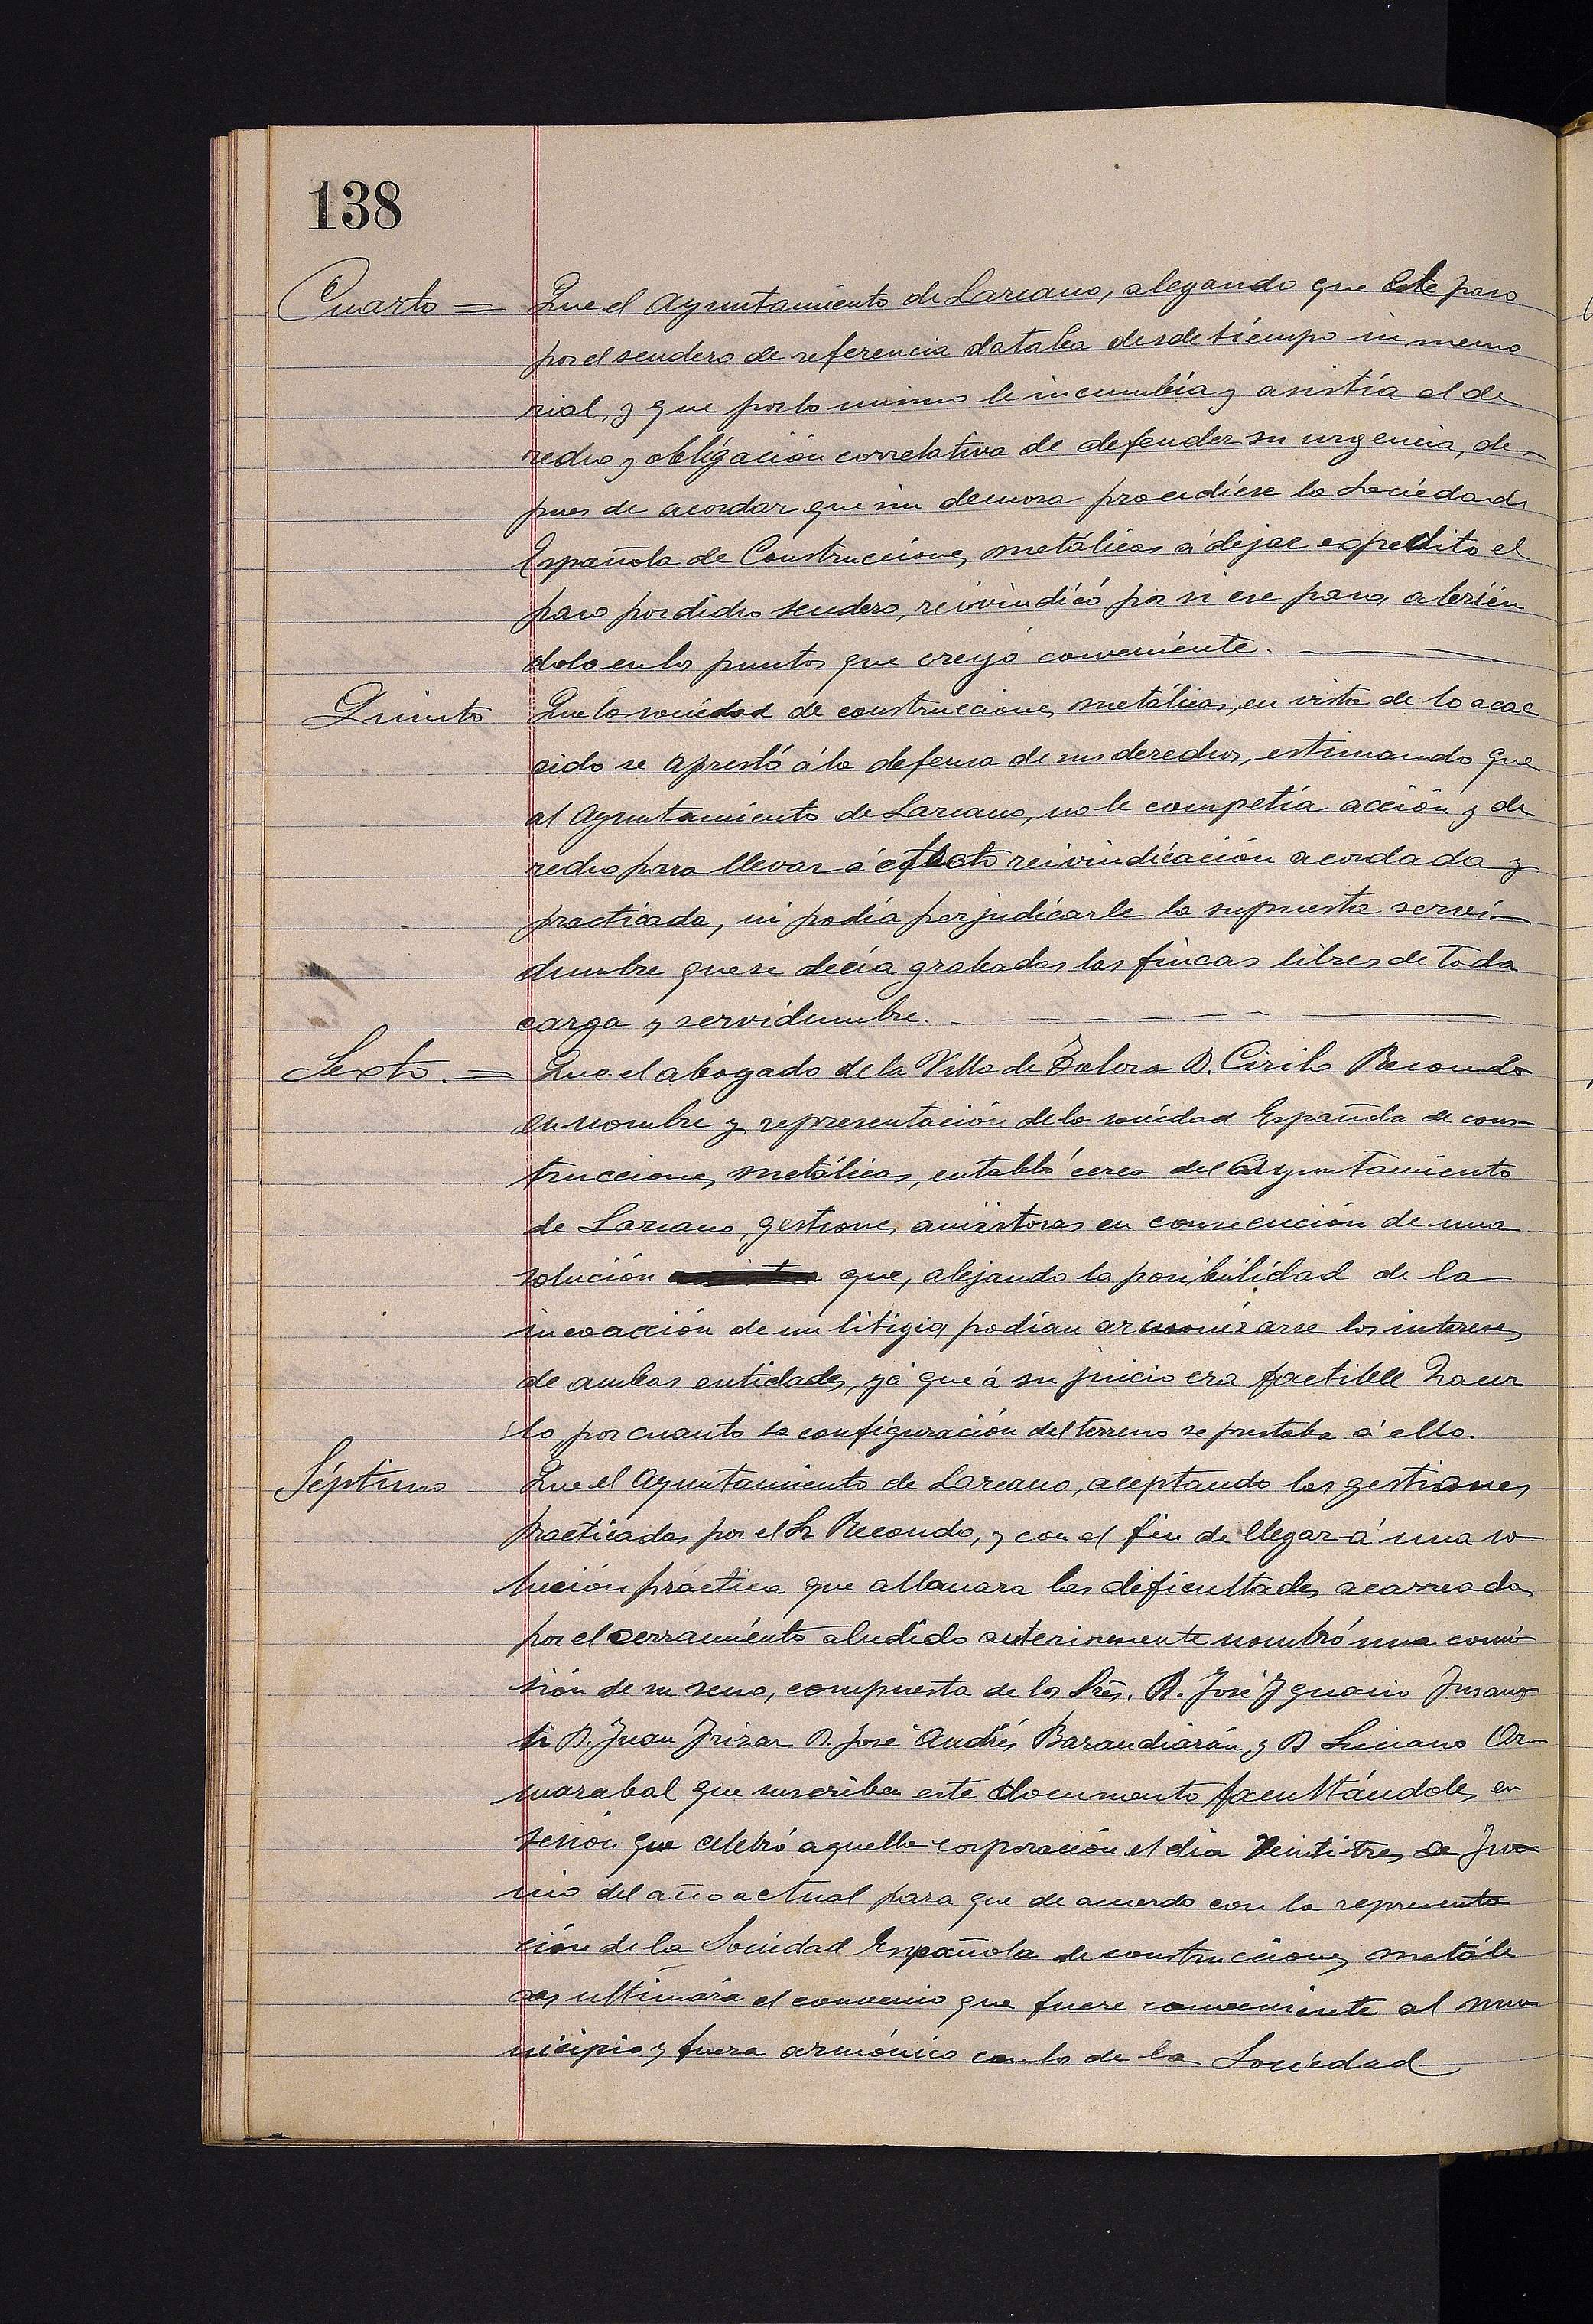 138
Cuarto = Que el Ayuntamiento de Lazcano, alegando que este paso
por el sendero de referencia databa desde tiempo in memo
rial, y que por lo mismo le incumbía y asistía al de
recho y obligación correlativa de defender su urgencia, des
pues de acordar que sin demora procediese la Sociedad
Española de Construcciones metálicas á dejar expedito el
paso por dicho sendero, reivindicó por si ese paso, abrién
dolo en los puntos que creyó conveniente.
Quinto Que la sociedad de construcciones metálicas, en vista de lo acae
cido se aprestó á la defensa de sus derechos, estimando que
al Ayuntamiento de Lazcano, no le competía acción y de
recho para llevar á efecto reivindicación acordada y
practicada, ni podía perjudicarle la supuesta servi-
dumbre que se decía grabadas las fincas libres de toda
carga y servidumbre.
Sexto. = Que el abogado de la Villa de Tolosa D. Cirilo Recondo
en nombre y representación de la sociedad Española de cons-
trucciones metálicas, entabló cerca del Ayuntamiento
de Lazcano, gestiones amistosas en consecución de una
solución que, alejando la posibilidad de la
incoacción de un litigio, podían armonizarse los intereses
de ambas entidades, yá que á su juicio era factible hacer
lo por cuanto la configuración del terreno se prestaba á ello.
Séptimo Que el Ayuntamiento de Lazcano, aceptando las gestiones
practicadas por el Sr Recondo, y con el fin de llegar á una so
lución práctica que allanara las dificultades acarreadas
por el cerramiento aludido anteriormente nombró una comi-
sión de su seno, compuesta de los Srés. D. José Ignacio Insaus-
ti D. Juan Irizar D. José Andrés Barandiarán, y D Luciano Or-
mazabal que suscriben este documento facultándoles en
sesión que celebró aquella corporación el dia veintitres de Ju
nio del año actual para que de acuerdo con la representa
ción de la Sociedad Española de construcciones metáli
cas ultimára el convenio que fuere conveniente al mu
nicipio y fuera armónico con los de la Sociedad